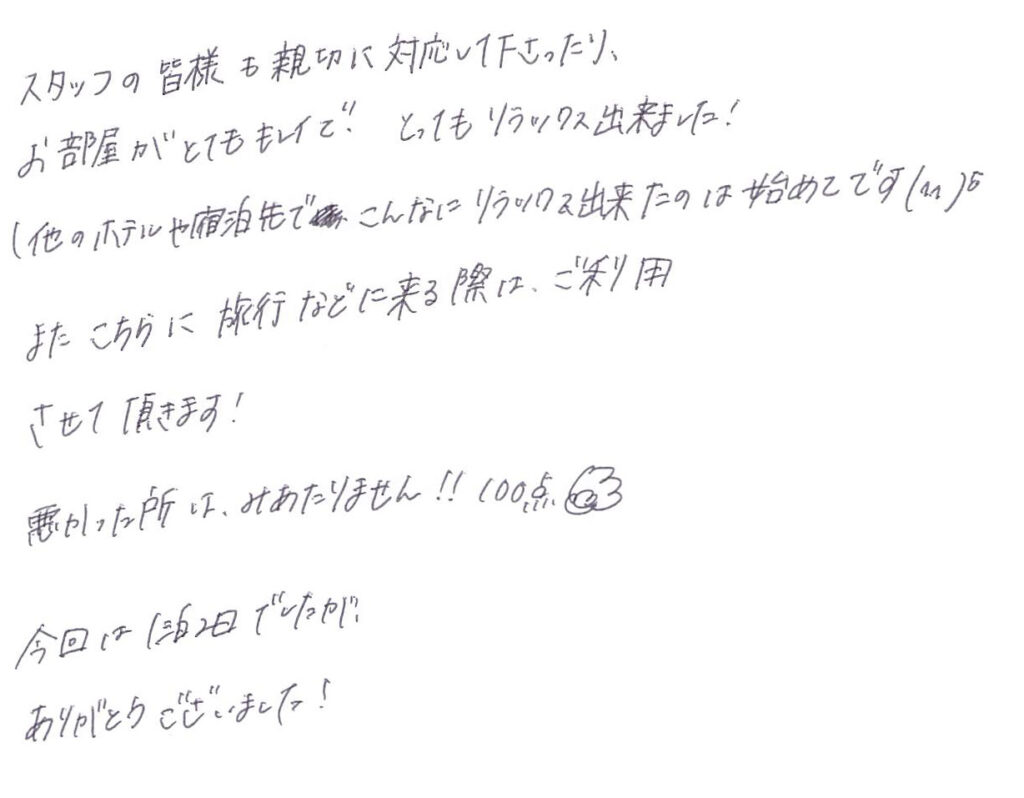 スタッフの皆様も親切に対応して下さったり、
お部屋がとてもキレイで! とってもリラックス出来ました!
(他のホテルや宿泊先で こんなにリラックス出来たのは始めてです
また こちらに 旅行などに来る際は、ご利用
させて頂きます!
悪かった所は、みあたりません!! 100点
今回は1泊2日でしたが、
ありがとうございました!